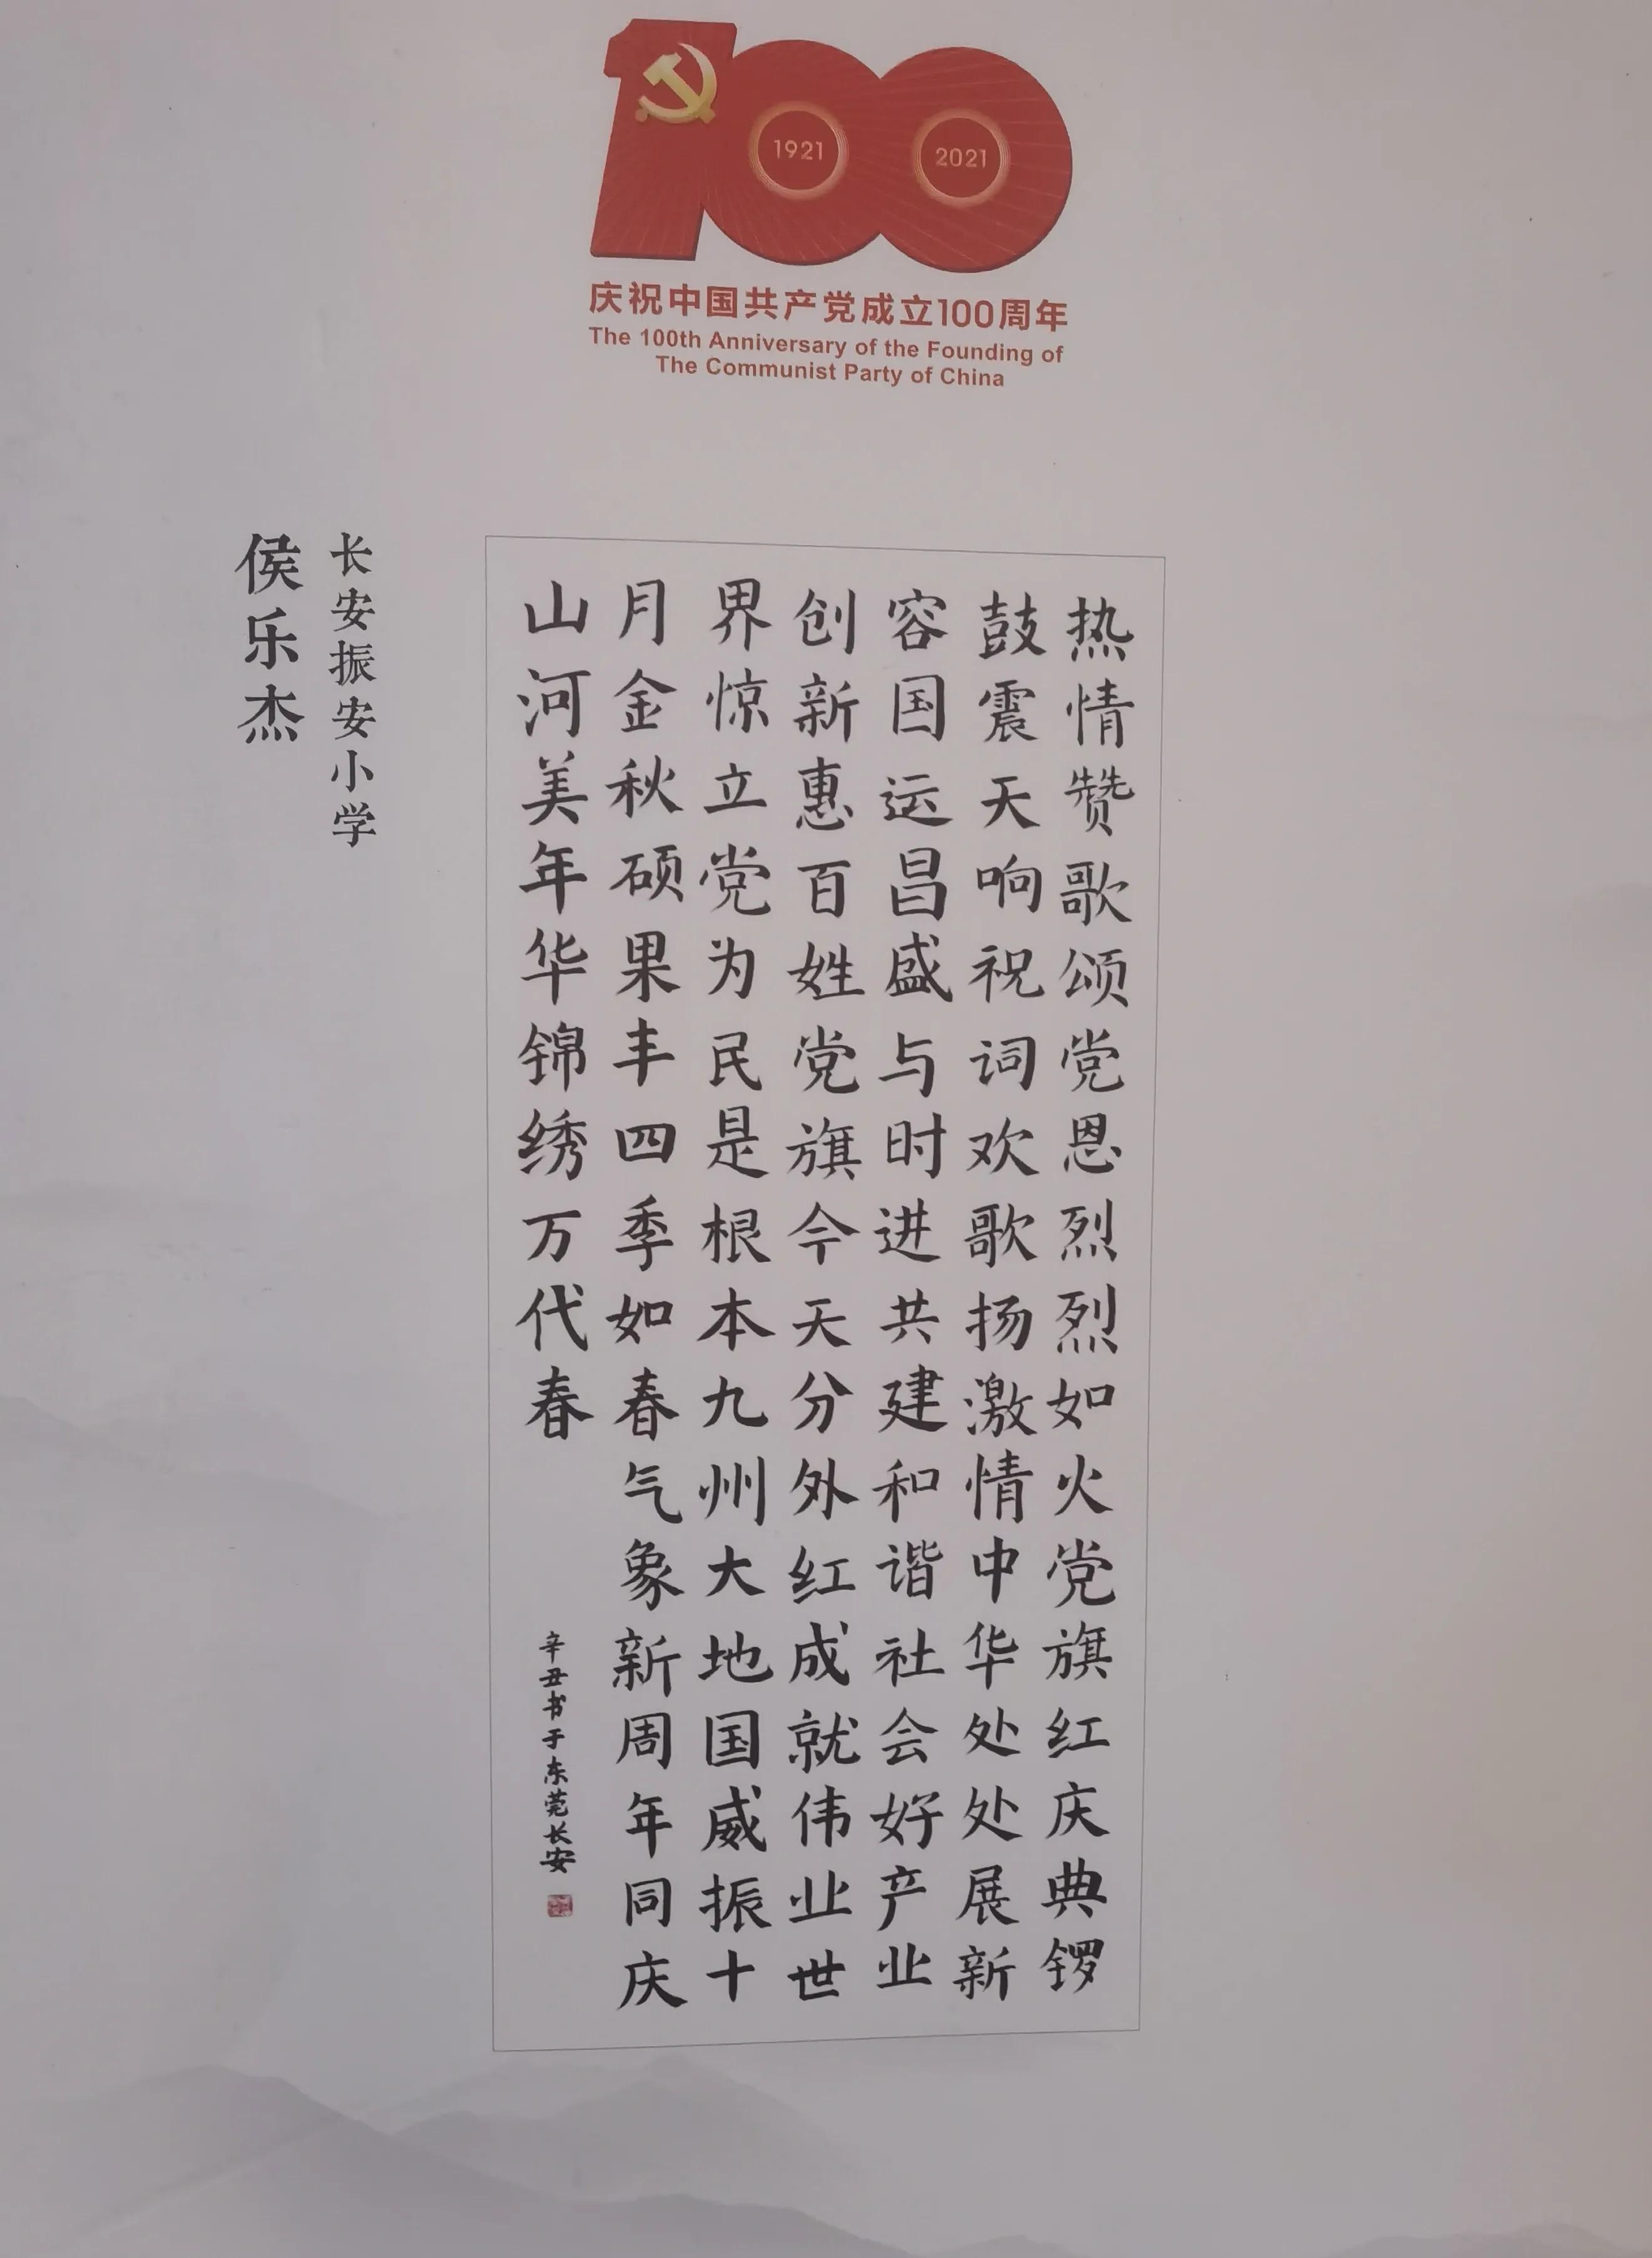 1921
2021
庆祝中国共产党成立100周年
The 100th Anniversary of the Founding of
The Communist Party of China
热情赞歌颂党恩烈烈如火党旗红庆典锣
鼓震天响祝词欢歌扬激情中华处处展新
容国运昌盛与时进共建和谐社会好产业
创新惠百姓党旗今天分外红成就伟业世
界惊立党为民是根本九州大地国威振十
月金秋硕果丰四季如春气象新周年同庆
山河美年华锦绣万代春
辛丑书于东莞长安
长安振安小学
侯乐杰